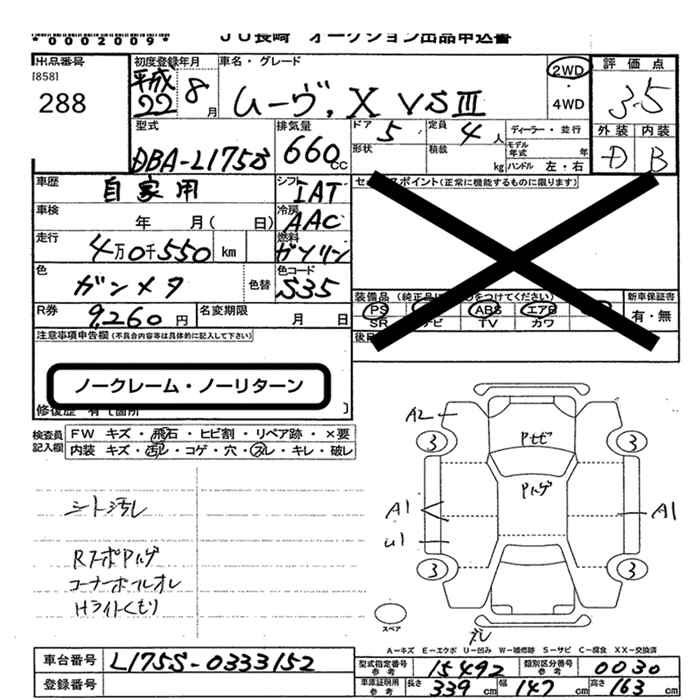 *0002009*
JU長崎 オークション出品申込書
出品番号
[858]
288
初度登録年月
平成22・8月
車名・グレード
ムーヴ, X VSⅢ
2WD
・
4WD
評価点
3.5
外装 内装
D B
型式
DBA-L175S
排気量
660 CC
ドア 5
定員 4人
形状
積載 kg
ディーラー・並行
モデル年式 年
ハンドル 左・右
車歴
自家用
シフト
IAT
車検
年 月( 日)
冷房
AAC
走行
4万0千550 km
燃料
ガソリン
色
ガンメタ
色替
色コード
S35
R券
9,260円
名変期限
月 日
セールスポイント(正常に機能するものに限ります)
装備品
PS
ABS
エアB
SR
ナビ
TV
カワ
新車保証書
有・無
注意事項申告欄 (不具合内容等は具体的に記入して下さい)
ノークレーム・ノーリターン
修復歴 有 (箇所 )
検査員記入欄
FW キズ・飛石・ヒビ割・リペア跡・×要
内装 キズ・汚レ・コゲ・穴・スレ・キレ・破レ
シート汚レ
RスポPハゲ
コーナーポールオレ
Hライトくもり
A2
3
3
Pトビ
Pハゲ
A1
U1
A1
3
3
スペア
A-キズ E-エクボ U-凹み W-補修跡 S-サビ C-腐食 XX-交換済
車台番号
L175S-0333152
登録番号
型式指定番号 参考
15492
類別区分番号 参考
0030
車庫証明用 参考
長さ 339 cm
幅 147 cm
高さ 163 cm